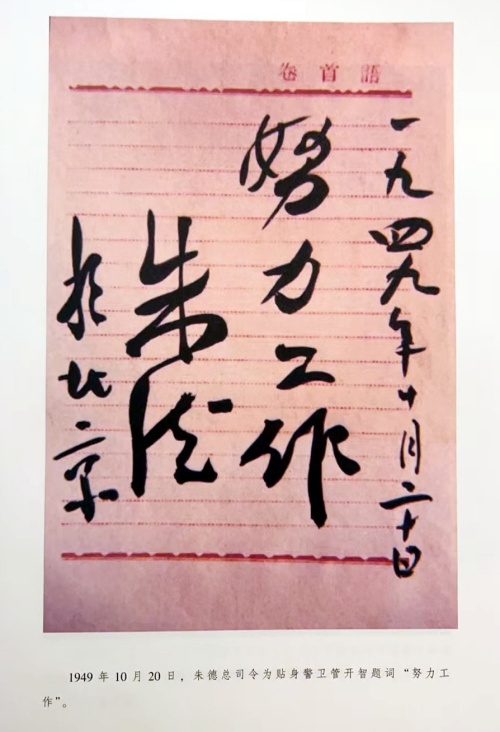 卷首語
一九四九年十月二十日
努力工作
朱德
於北京
1949 年 10 月 20 日，朱德总司令为贴身警卫管开智题词“努力工
作”。